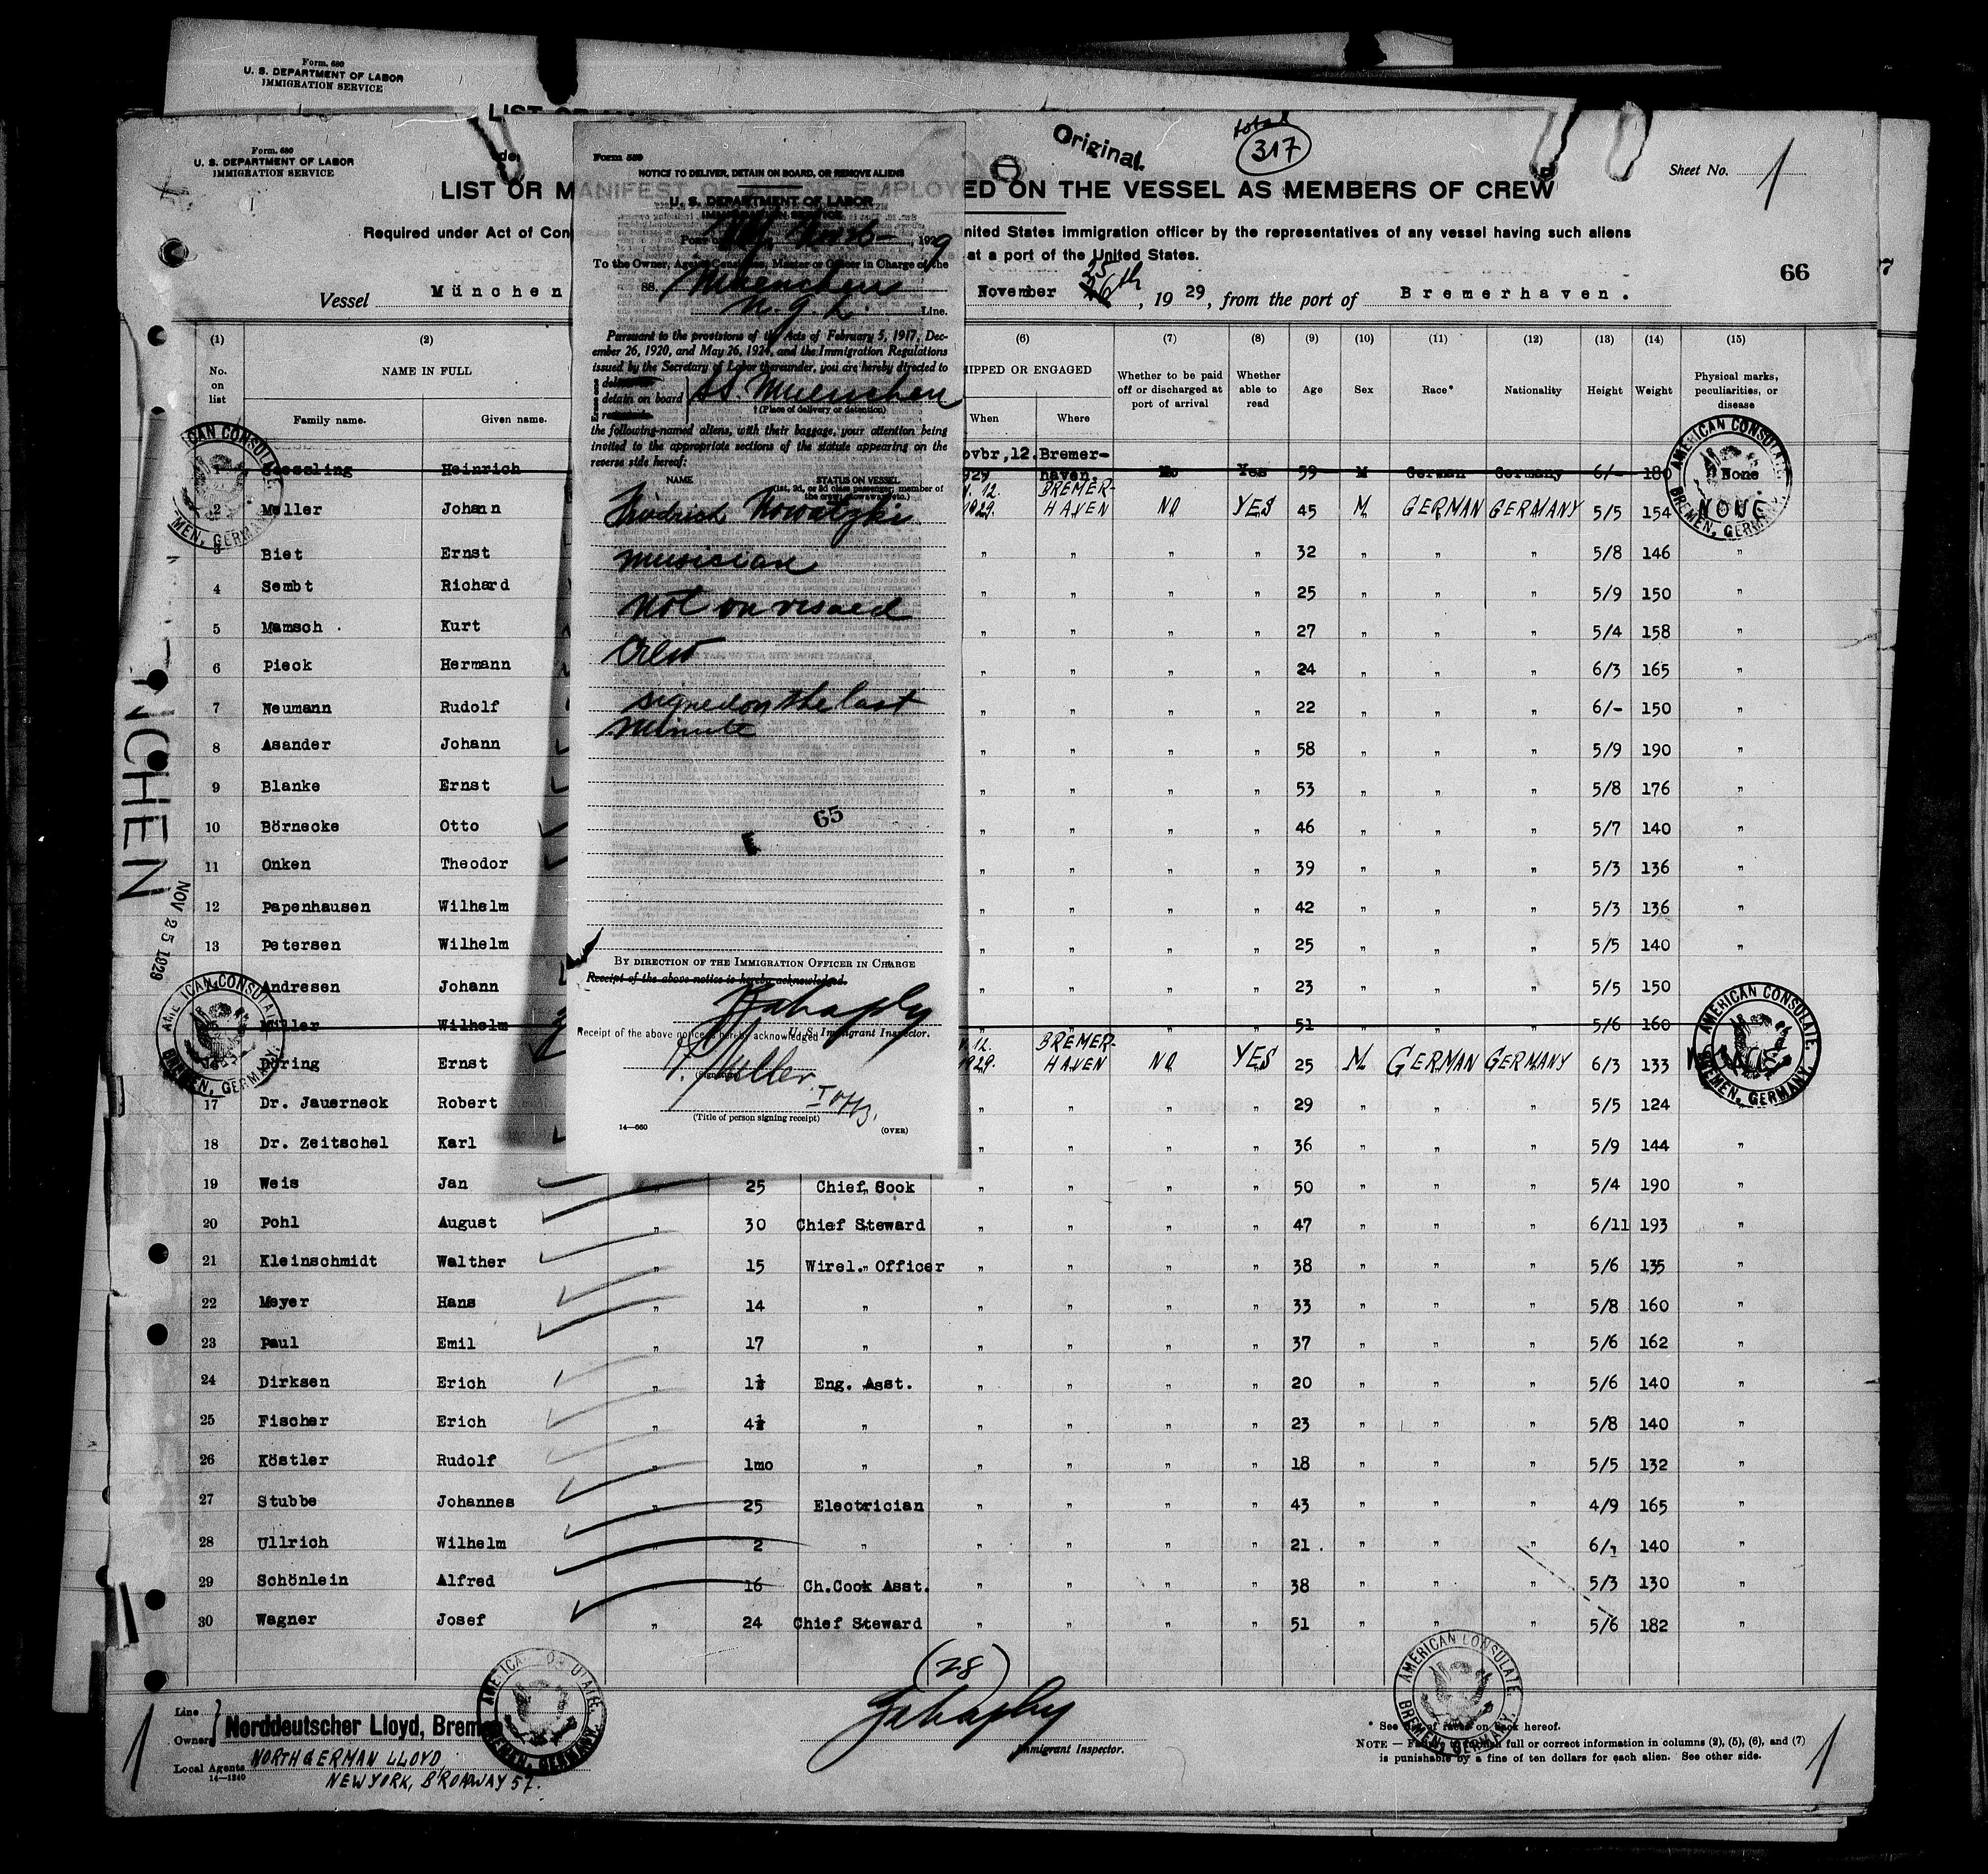 Form. 680
U. S. DEPARTMENT OF LABOR
IMMIGRATION SERVICE
Form. 680
U. S. DEPARTMENT OF LABOR
IMMIGRATION SERVICE
Original.
total
317
Sheet No. 1
LIST OR MANIFEST OF ALIENS EMPLOYED ON THE VESSEL AS MEMBERS OF CREW
Required under Act of Con
nited States immigration officer by the representatives of any vessel having such aliens
at a port of the United States.
66
Vessel München
November 25th, 1929, from the port of Bremerhaven.
Form 559
NOTICE TO DELIVER, DETAIN ON BOARD, OR REMOVE ALIENS
U. S. DEPARTMENT OF LABOR
IMMIGRATION SERVICE
1929
To the Owner, Agent, Consignee, Master or Officer in Charge of the
SS. Muenchen
N. G. L. Line.
Pursuant to the provisions of the Acts of February 5, 1917, Dec-
ember 26, 1920, and May 26, 1924, and the Immigration Regulations
issued by the Secretary of Labor thereunder, you are hereby directed to
detain on board SS. Muenchen
† (Place of delivery or detention)
the following-named aliens, with their baggage, your attention being
invited to the appropriate sections of the statute appearing on the
reverse side hereof:
NAME STATUS ON VESSEL
(1st, 2d, or 3d class passenger, member of
the crew, stowaway, etc.)
Friedrich Kowatzki
musician
not on visaed
crew
signed on the last
minute
65
BY DIRECTION OF THE IMMIGRATION OFFICER IN CHARGE
Receipt of the above notice is hereby acknowledged.
U. S. Immigrant Inspector.
Receipt of the above notice is hereby acknowledged
(Signature)
(Title of person signing receipt)
14—660
(OVER)
(1) (2) (6) (7) (8) (9) (10) (11) (12) (13) (14) (15)
No. on list
NAME IN FULL
Family name. Given name.
HIPPED OR ENGAGED
When Where
Whether to be paid off or discharged at port of arrival
Whether able to read
Age Sex Race* Nationality Height Weight
Physical marks, peculiarities, or disease
Heinrich ovbr,12. 929 Bremer-haven. No Yes 59 M German Germany 6/- 180 None
2 Meller Johann 12. 1929. BREMER-HAVEN NO YES 45 M GERMAN GERMANY 5/5 154 NONE
3 Biet Ernst " " " " 32 " " " 5/8 146 "
4 Sembt Richard " " " " 25 " " " 5/9 150 "
5 Mamsch Kurt " " " " 27 " " " 5/4 158 "
6 Pieck Hermann " " " " 24 " " " 6/3 165 "
7 Neumann Rudolf " " " " 22 " " " 6/- 150 "
8 Asander Johann " " " " 58 " " " 5/9 190 "
9 Blanke Ernst " " " " 53 " " " 5/8 176 "
10 Börnecke Otto " " " " 46 " " " 5/7 140 "
11 Onken Theodor " " " " 39 " " " 5/3 136 "
12 Papenhausen Wilhelm " " " " 42 " " " 5/3 136 "
13 Petersen Wilhelm " " " " 25 " " " 5/5 140 "
Andresen Johann " " " " 23 " " " 5/5 150
Müller Wilhelm " " " " 51 " " " 5/6 160
Döring Ernst 12. 1929. BREMER-HAVEN NO YES 25 M GERMAN GERMANY 6/3 133
17 Dr. Jauerneck Robert " " " " 29 " " " 5/5 124
18 Dr. Zeitschel Karl " " " " 36 " " " 5/9 144 "
19 Weis Jan 25 Chief Cook " " " " 50 " " " 5/4 190 "
20 Pohl August " 30 Chief Steward " " " " 47 " " " 6/11 193 "
21 Kleinschmidt Walther " 15 Wirel. Officer " " " " 38 " " " 5/6 135 "
22 Meyer Hans " 14 " " " " " 33 " " " 5/8 160 "
23 Paul Emil " 17 " " " " " 37 " " " 5/6 162 "
24 Dirksen Erich " 1½ Eng. Asst. " " " " 20 " " " 5/6 140 "
25 Fischer Erich " 4½ " " " " " 23 " " " 5/8 140 "
26 Köstler Rudolf " 1mo " " " " " 18 " " " 5/5 132 "
27 Stubbe Johannes " 25 Electrician " " " " 43 " " " 4/9 165 "
28 Ullrich Wilhelm " 2 " " " " " 21 " " " 6/1 140 "
29 Schönlein Alfred " 16 Ch.Cook Asst. " " " " 38 " " " 5/3 130 "
30 Wagner Josef " 24 Chief Steward " " " " 51 " " " 5/6 182 "
NOV 25 1929
AMERICAN CONSULATE
BREMEN, GERMANY.
(28)
Immigrant Inspector.
Line
Owners Norddeutscher Lloyd, Bremen
Local Agents NORTH GERMAN LLOYD
14—1240
NEW YORK, BROADWAY 57.
* See list of races on back hereof.
NOTE — Failure to furnish full or correct information in columns (2), (5), (6), and (7)
is punishable by a fine of ten dollars for each alien. See other side.
1
1